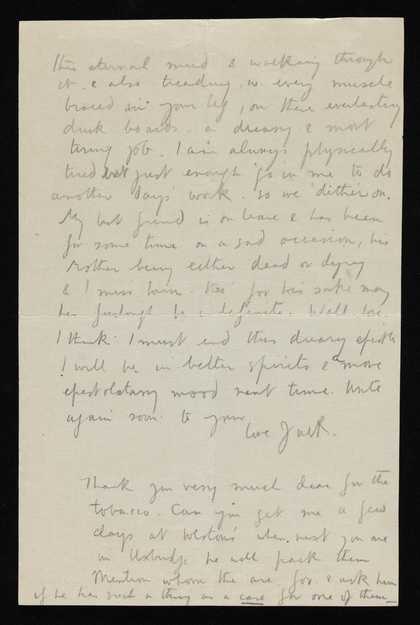 this eternal mud & walking through
it & also treading, w. every muscle
braced in your leg, on these everlasting
duck boards. a dreary & most
tiring job. I am always physically
tired but just enough 'go' in me to do
another days' work. so we 'dither' on.
My best friend is on leave & has been
for some time on a sad occasion, his
Mother being either dead or dying
& I miss him. for his sake may
his furlough be indefinite. Well love
I think I must end this dreary epistle
I will be in better spirits & a more
epistolatary mood next time. Write
again soon to your
love Jack.
Thank you very much dear for the
tobacco. Can you get me a few
clays at when next you are
in Uxbridge he will pack them
Mention whom the are for & ask him
if he has such a thing as a case for one of them